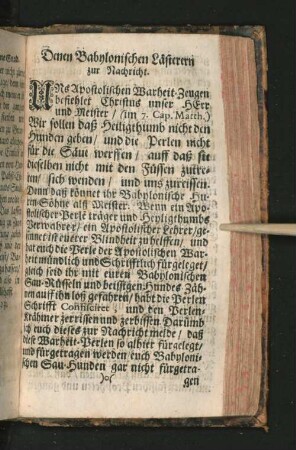 Denen Babylonischen Lästerern
zur Nachricht.
UNs Apostolischen Warheit-Zeugen
befiehlet Christus unser HErr
und Meister / (im 7. Cap. Matth.)
Wir sollen daß Heiligthumb nicht den
Hunden geben / und die Perlen nicht
für die Säui werffen / auff daß sie
dieselben nicht mit den Füssen zutre-
ten / sich wenden / und uns zurreissen.
Denn daß könnet ihr Babylonische Hu-
ren-Söhne alß Meister. Wenn ein Apo-
stolischer Perle träger und Heyligthumbs
Verwahrer / ein Apostolischer Lehrer / ge-
sinnet ist euerer Blindheit zu helffen / und
hat euch die Perle der Apostolischen War-
heit mündlich und Schrifftlich fürgeleget /
gleich seid ihr mit euren Babylonischen
Sau-Rüsseln und beissigen Hundes Zäh-
nen auff ihn loß gefahren / habt die Perlen
Schrifft Confisciret, und den Perlen-
krähmer zerrissen und zerbissen. Darümb
ich euch dieses zur Nachricht melde / daß
diese Warheit-Perlen so albier fürgelegt /
und fürgetragen werden / euch Babyloni-
schen Sau-Hunden gar nicht fürgetra-
)o( gen